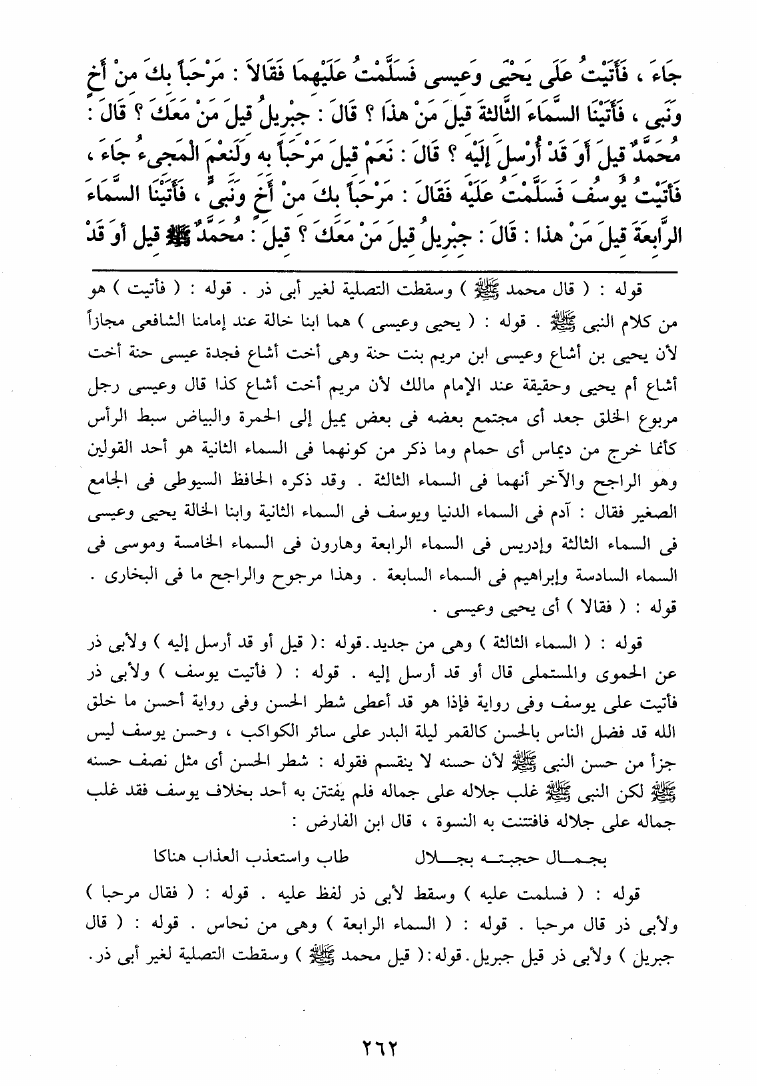 جَاءَ ، فَأَتَيْتُ عَلَى يَحْيَى وَعِيسى فَسَلَّمْتُ عَلَيْهِمَا فَقَالاَ : مَرْحَباً بِكَ مِنْ أَخٍ
وَنَبِى ، فَأَتَيْنَا السَّمَاءَ الثَّالثةَ قِيلَ مَنْ هذَا ؟ قَالَ : جِبْرِيلُ قِيلَ مَنْ مَعَكَ ؟ قَالَ :
مُحَمَّدٌ قِيلَ أَوَ قَدْ أُرْسِلَ إِلَيْهِ ؟ قَالَ : نَعَمْ قِيلَ مَرْحَباً بِهِ وَلَنِعْمَ الْمَجِىءُ جَاءَ ،
فَأَتَيْتُ يُوسُفَ فَسَلَّمْتُ عَلَيْهِ فَقَالَ : مَرْحَباً بِكَ مِنْ أَخٍ وَنَبِىٍّ ، فَأَتَيْنَا السَّمَاءَ
الرَّابِعَةَ قِيلَ مَنْ هذا : قَالَ : جِبْرِيلُ قِيلَ مَنْ مَعَكَ ؟ قِيلَ : مُحَمَّدٌ ﷺ قِيل أوَ قَدْ
قوله : ( قال محمد ﷺ ) وسقطت التصلية لغير أبى ذر . قوله : ( فأتيت ) هو
من كلام النبى ﷺ . قوله : ( يحيى وعيسى ) هما ابنا خالة عند إمامنا الشافعى مجازاً
لأن يحيى بن أشاع وعيسى ابن مريم بنت حنة وهى أخت أشاع فجدة عيسى حنة أخت
أشاع أم يحيى وحقيقة عند الإمام مالك لأن مريم أخت أشاع كذا قال وعيسى رجل
مربوع الخلق جعد أى مجتمع بعضه فى بعض يميل إلى الحمرة والبياض سبط الرأس
كأنما خرج من ديماس أى حمام وما ذكر من كونهما فى السماء الثانية هو أحد القولين
وهو الراجح والآخر أنهما فى السماء الثالثة . وقد ذكره الحافظ السيوطى فى الجامع
الصغير فقال : آدم فى السماء الدنيا ويوسف فى السماء الثانية وابنا الخالة يحيى وعيسى
فى السماء الثالثة وإدريس فى السماء الرابعة وهارون فى السماء الخامسة وموسى فى
السماء السادسة وإبراهيم فى السماء السابعة . وهذا مرجوح والراجح ما فى البخارى .
قوله : ( فقالا ) أى يحيى وعيسى .
قوله : ( السماء الثالثة ) وهى من جديد. قوله :( قيل أو قد أرسل إليه ) ولأبى ذر
عن الحموى والمستملى قال أو قد أرسل إليه . قوله : ( فأتيت يوسف ) ولأبى ذر
فأتيت على يوسف وفى رواية فإذا هو قد أعطى شطر الحسن وفى رواية أحسن ما خلق
الله قد فضل الناس بالحسن كالقمر ليلة البدر على سائر الكواكب ، وحسن يوسف ليس
جزأ من حسن النبى ﷺ لأن حسنه لا ينقسم فقوله : شطر الحسن أى مثل نصف حسنه
ﷺ لكن النبى ﷺ غلب جلاله على جماله فلم يفتتن به أحد بخلاف يوسف فقد غلب
جماله على جلاله فافتتنت به النسوة ، قال ابن الفارض :
بجـمـال حجبتـه بجـــلال طاب واستعذب العذاب هناكا
قوله : ( فسلمت عليه ) وسقط لأبى ذر لفظ عليه . قوله : ( فقال مرحبا )
ولأبى ذر قال مرحبا . قوله : ( السماء الرابعة ) وهى من نحاس . قوله : ( قال
جبريل ) ولأبى ذر قيل جبريل. قوله:( قيل محمد ﷺ ) وسقطت التصلية لغير أبى ذر.
٢٦٢